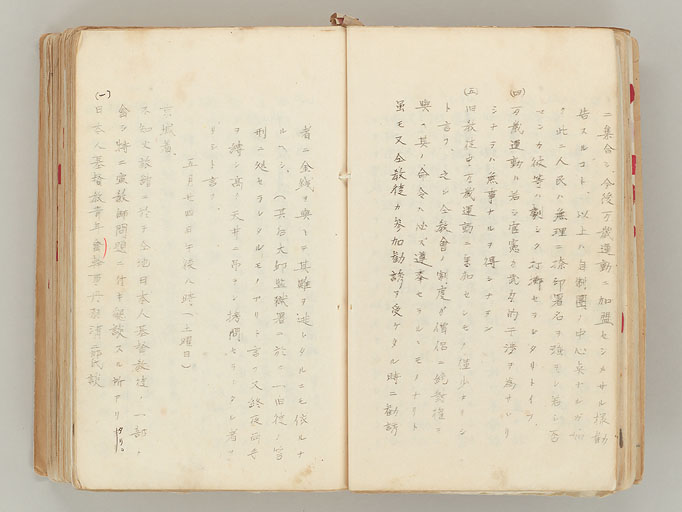 ニ集合シ今後万歳運動ニ加盟センメサル様勧
告スルコト、以上ハ自制團ノ中心点ナルガ如
ク此ニ人民ハ無理ニ捺印署名ヲ強モシ若シ否
マンカ彼等ハ劇シク打擲セラレタリトイフ、
(四)万歳運動ハ若シ官憲カ武断的干渉ヲ為サヾリ
シナラバ無事ナルヲ得シナラン
(五)旧教徒中万歳運動ニ参加センモノ僅少ナリシ
ト言フ、之レ全教會ノ制度ガ僧侶ニ絶對權ヲ
與ヘ其ノ命令ハ必ズ遵奉セラルヽモノナリト
虽モ又全教徒カ参加勧誘ヲ受ケタル時ニ勧誘
者ニ金銭ヲ與ヘテ其難ヲ逃レタルニモ依ルナ
ルヘシ、(其后大邱監獄署ニ於テ一旧徒ノ笞
刑ニ処セラレタルモノアリト言フ又終夜両手
ヲ縛シ高ク天井ニ吊ラシ拷問セラレタル者ア
リキト言フ
五月廿四日午後八時(土曜日)
京城着、
不知火旅館ニ於テ全地日本人基督教徒ノ一部ノ
會シ特ニ宣教師問題ニ付キ懇談スル所アリタリ。
(一)日本人基督教青年會幹事 氏談